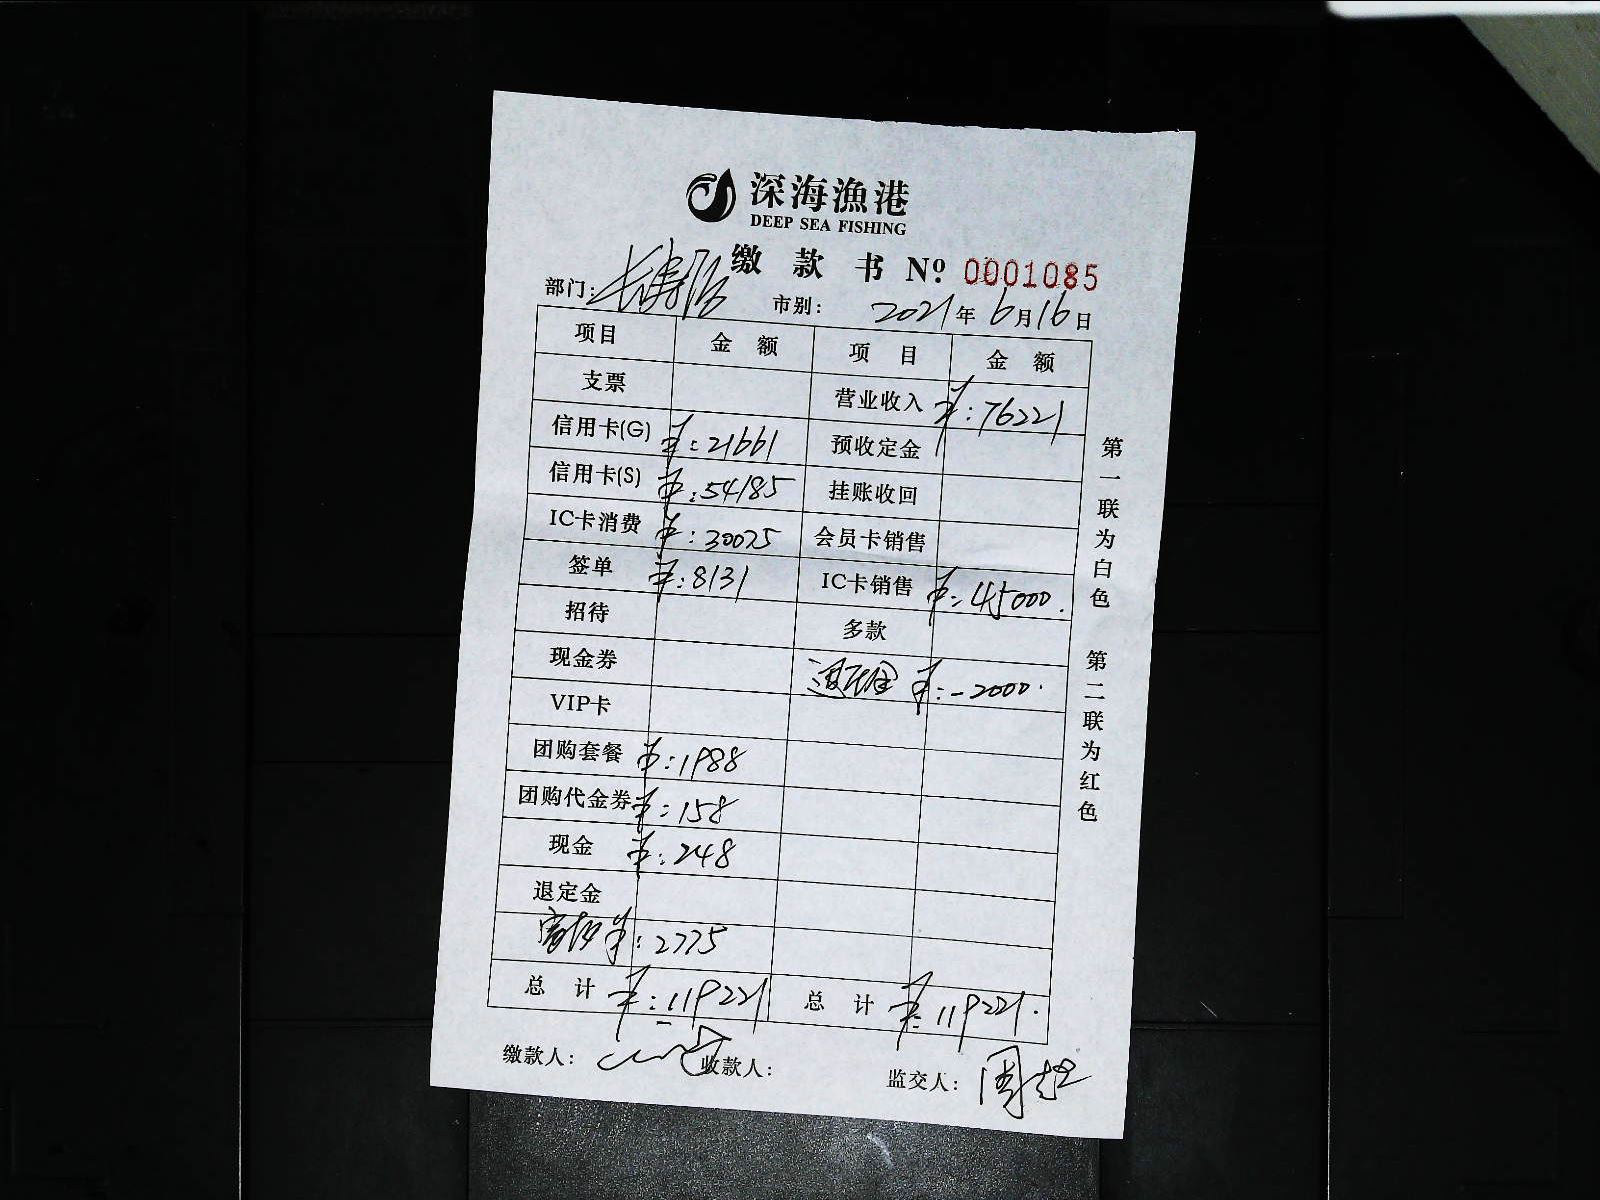 深海漁港
DEEP SEA FISHING
缴款书 № 0001085
部门: 长寿路 市别: 2021年6月16日
项目 金额 项目 金额
支票 营业收入 ¥:76221
信用卡(G) ¥:21661 预收定金
信用卡(S) ¥:54185 挂账收回
IC卡消费 ¥:30075 会员卡销售
签单 ¥:8131 IC卡销售 ¥:45000.
招待 多款
现金券 退定金 ¥:-2000.
VIP卡
团购套餐 ¥:1988
团购代金券 ¥:158
现金 ¥:248
退定金
¥:2775
总计 ¥:119221 总计 ¥:119221.
缴款人: 收款人: 监交人:
第一联为白色 第二联为红色